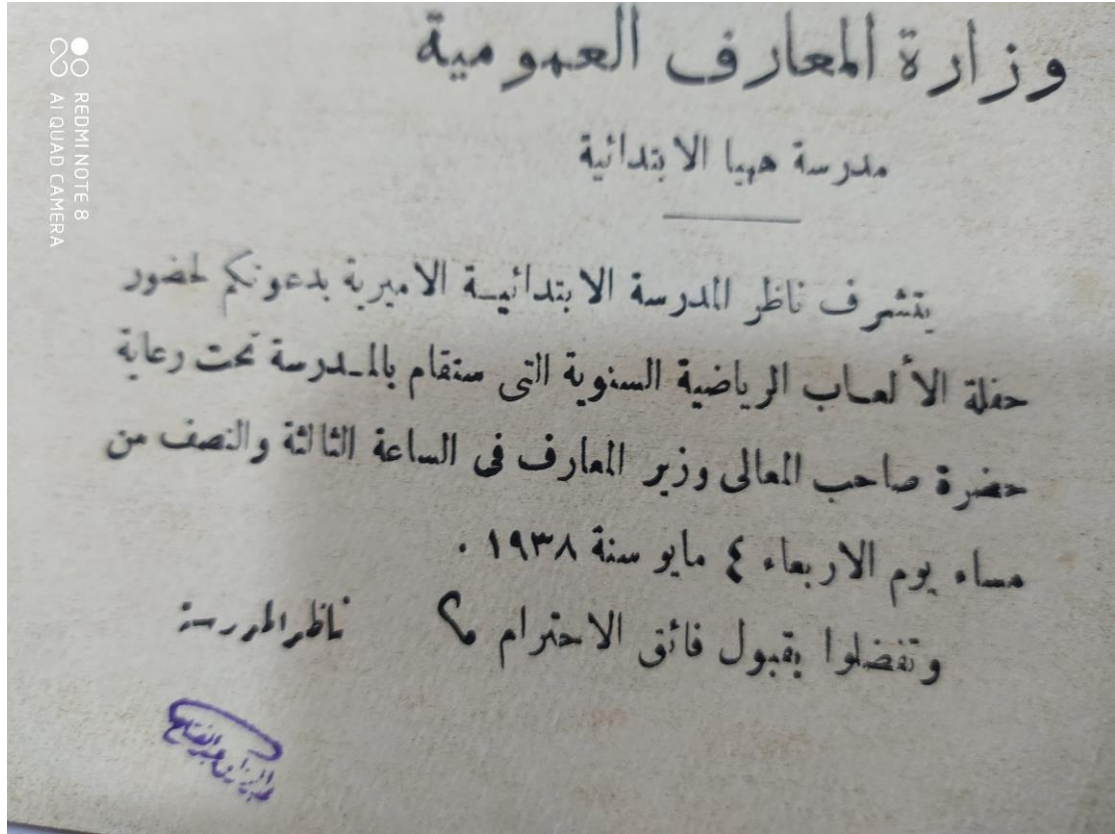 وزارة المعارف العمومية
مدرسة ههيا الابتدائية
يتشرف ناظر المدرسة الابتدائيـة الاميرية بدعوتكم لحضور
حفلة الألعـاب الرياضية السنوية التى ستقام بالمـدرسة تحت رعاية
حضرة صاحب المعالى وزير المعارف فى الساعة الثالثة والنصف من
مساء يوم الاربعاء ٤ مايو سنة ١٩٣٨ .
وتفضلوا بقبول فائق الاحترام
ناظر المدرسة
REDMI NOTE 8
AI QUAD CAMERA